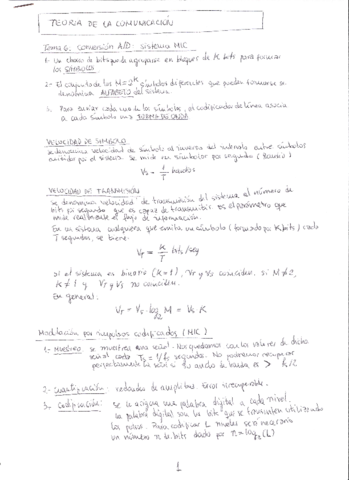 TEORIA DE LA COMUNICACION
Tema 6: Conversión A/D: sistema MIC
1- Un chorro de bits puede agruparse en bloques de K bits para formar
los SIMBOLOS
2- El conjunto de los M=2^k símbolos diferentes que pueden formarse se
denomina ALFABETO del sistema.
3- Para enviar cada uno de los símbolos, el codificador de línea asocia
a cada símbolo una FORMA DE ONDA
VELOCIDAD DE SIMBOLO
se denomina velocidad de símbolo al inverso del intervalo entre símbolos
emitido por el sistema. Se mide en símbolos por segundo (Baudio)
Vs = 1/T baudios
VELOCIDAD DE TRANSMISIÓN
se denomina velocidad de transmisión del sistema al número de
bits por segundo que es capaz de transmitir es el parámetro que
mide realmente el flujo de información.
En un sistema cualquiera que emita un símbolo (formado por K bits) cada
T segundos, se tiene:
VT = K/T bits/seg
si el sistema es binario (k=1), VT y Vs coinciden, si M≠2,
k≠1 y VT y Vs no coinciden.
En general,
VT = Vs · log2 M = Vs K
Modulación por impulsos codificados (MIC)
1- MUESTREO se muestrea una señal. Nos quedamos con los valores de dicha
señal cada Ts = 1/fs segundos. No podremos recuperar
perfectamente la señal si su ancho de banda es > fs/2
2- Cuantificación: redondeo de amplitud. Error irrecuperable.
3- Codificación: se le asigna una palabra digital a cada nivel.
la palabra digital son los bits que se transmiten utilizando
los pulsos. Para codificar L niveles será necesario
un número n de bits dado por n = log2(L)
1